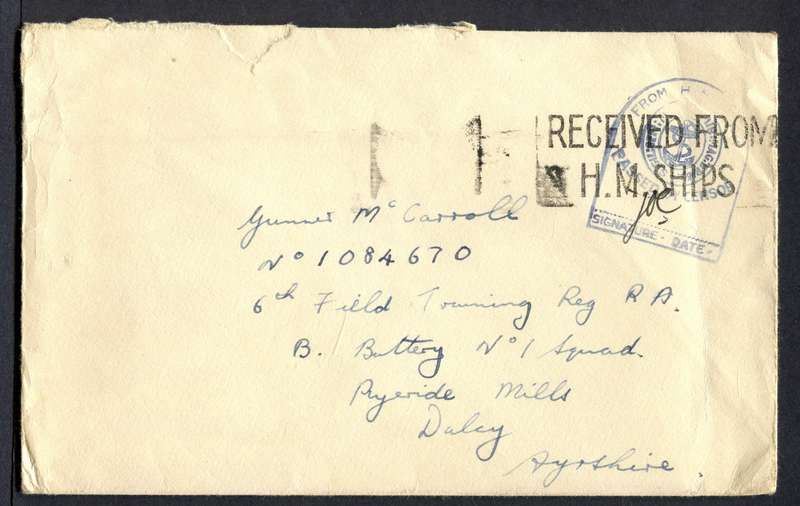 FROM H.
RECEIVED FROM
H.M. SHIPS
PASSED CENSOR
SIGNATURE - DATE -
Gunner Mc Carroll
No 1084670
6th Field Training Reg R A.
B. Battery No 1 Squad.
Mills
Dalry
Ayrshire.